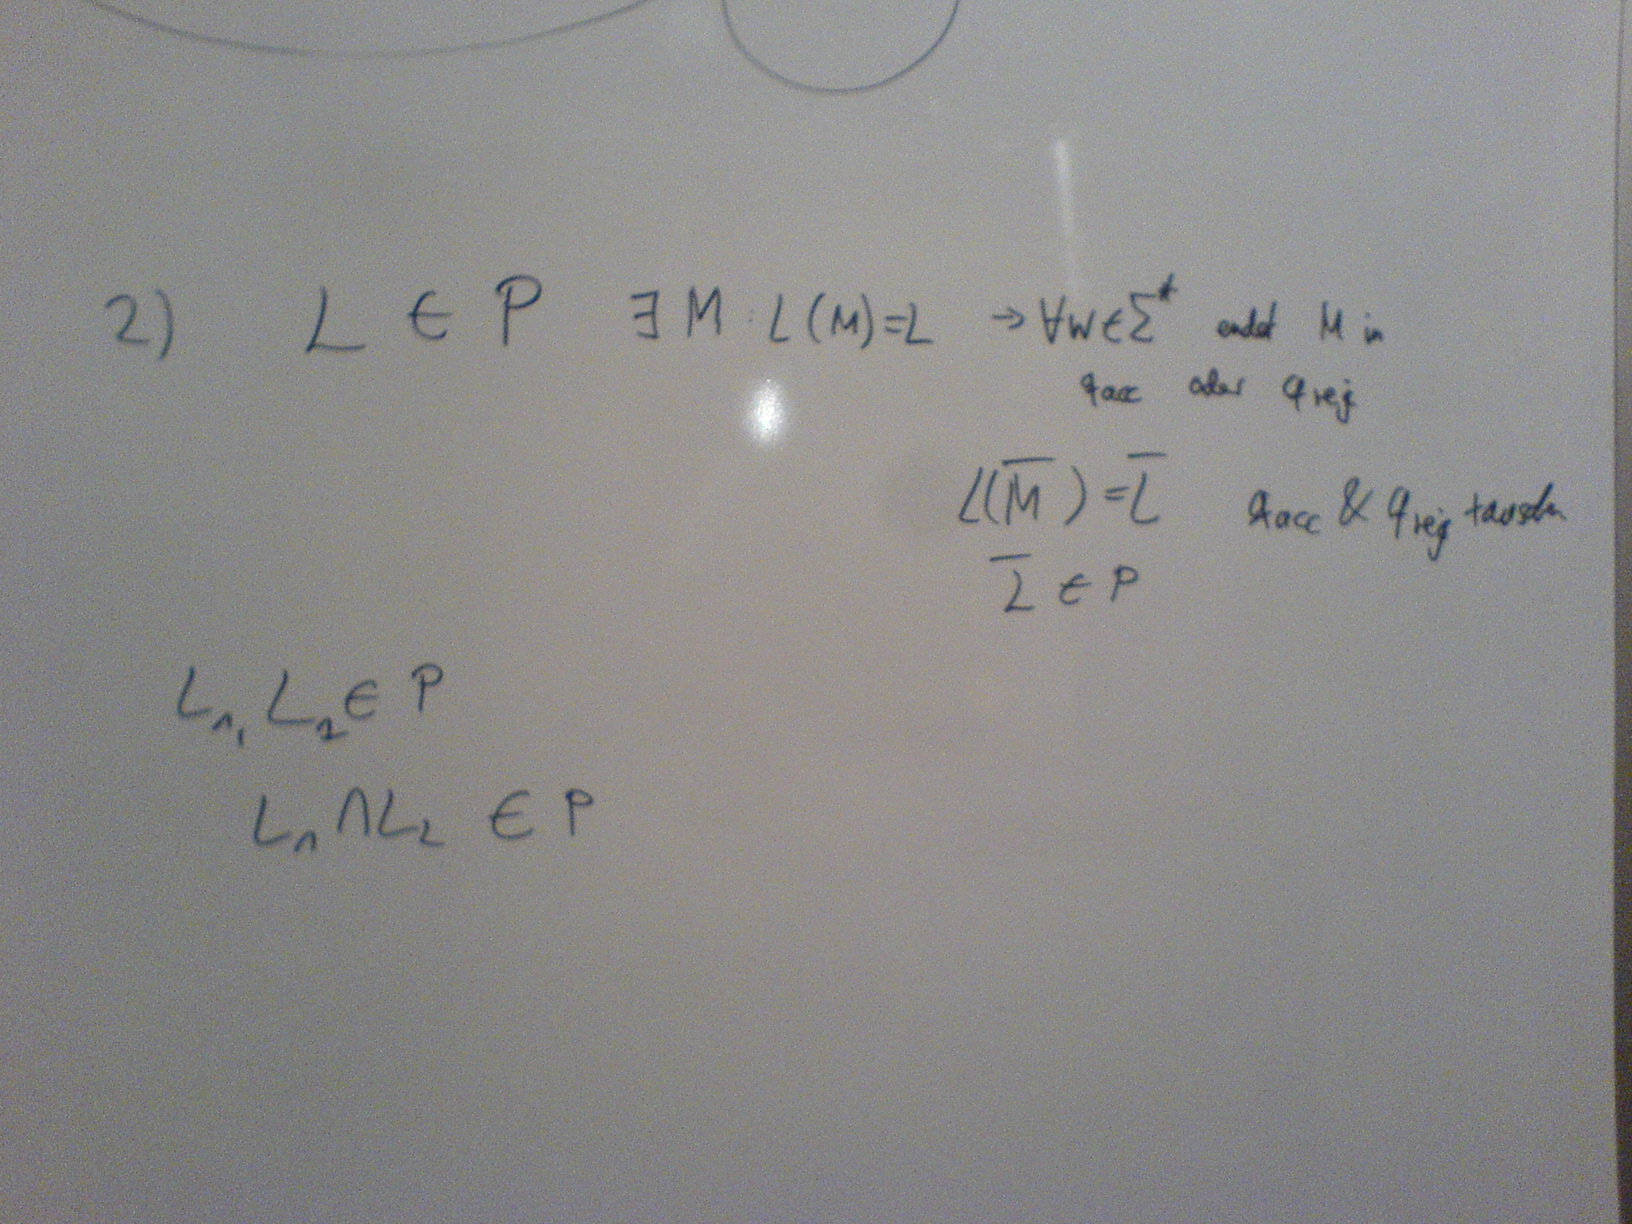 2) L ∈ P ∃ M : L(M)=L → ∀w∈Σ* endet M in
qacc oder qrej
L(M̅) = L̅ qacc & qrej tauschen
L̅ ∈ P
L₁, L₂ ∈ P
L₁ ∩ L₂ ∈ P